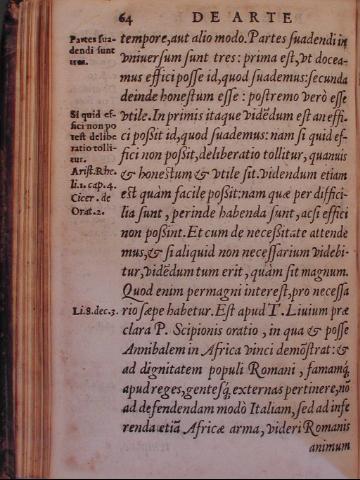 64 DE ARTE
Partes sua-
dendi sunt
tres.
tempore, aut alio modo. Partes suadendi in
vniuersum sunt tres: prima est, vt docea-
mus effici posse id, quod suademus: secunda
deinde honestum esse: postremo verò esse
Si quid ef-
fici non po
test delibe
ratio tolli-
tur.
Arist. Rhe.
li.1. cap. 4.
Cicer. de
Orat. 2.
vtile. In primis itaque vidēdum est an effi-
ci poßit id, quod suademus: nam si quid ef-
fici non poßit, deliberatio tollitur, quanuis
& honestum & vtile sit. Videndum etiam
est quàm facile poßit: nam quæ per diffici-
lia sunt, perinde habenda sunt, acsi effici
non poßint. Et cum de neceßitate attende
mus, & si aliquid non necessarium videbi-
tur, vidēdum tum erit, quàm sit magnum.
Quod enim permagni interest, pro necessa
Li. 8. dec. 3.
rio sæpe habetur. Est apud T. Liuium præ
clara P. Scipionis oratio, in qua & posse
Annibalem in Africa vinci demōstrat: &
ad dignitatem populi Romani, famamq́;
apud reges, gentesq́; externas pertinere, nō
ad defendendam modò Italiam, sed ad infe
renda etiā Africæ arma, videri Romanis
animum